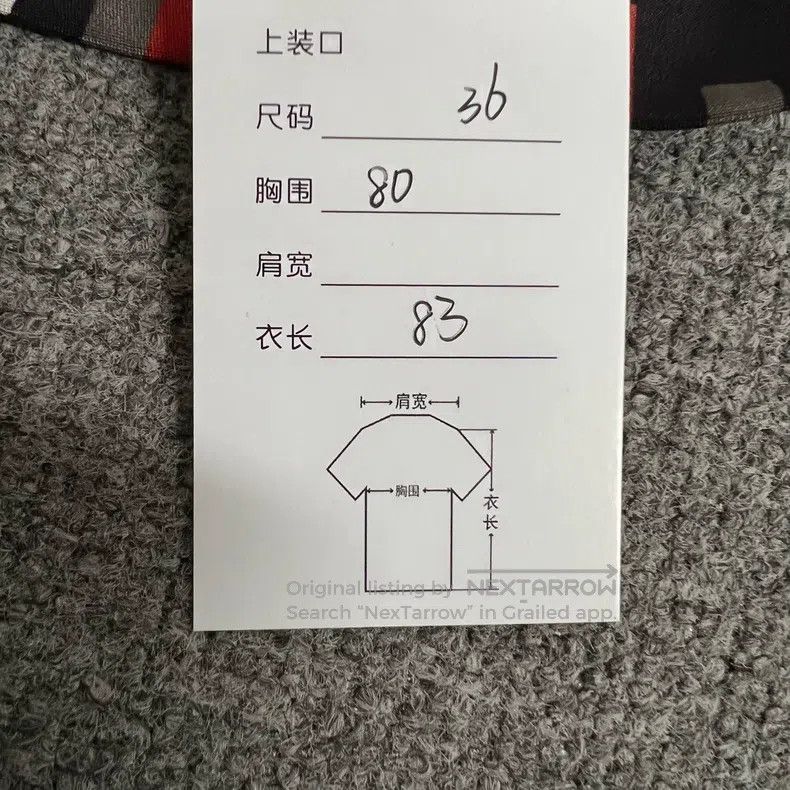 上装口
尺码 36
胸围 80
肩宽
衣长 83
肩宽
胸围
衣长
Original listing by NEXTARROW
Search "NexTarrow" in Grailed app.